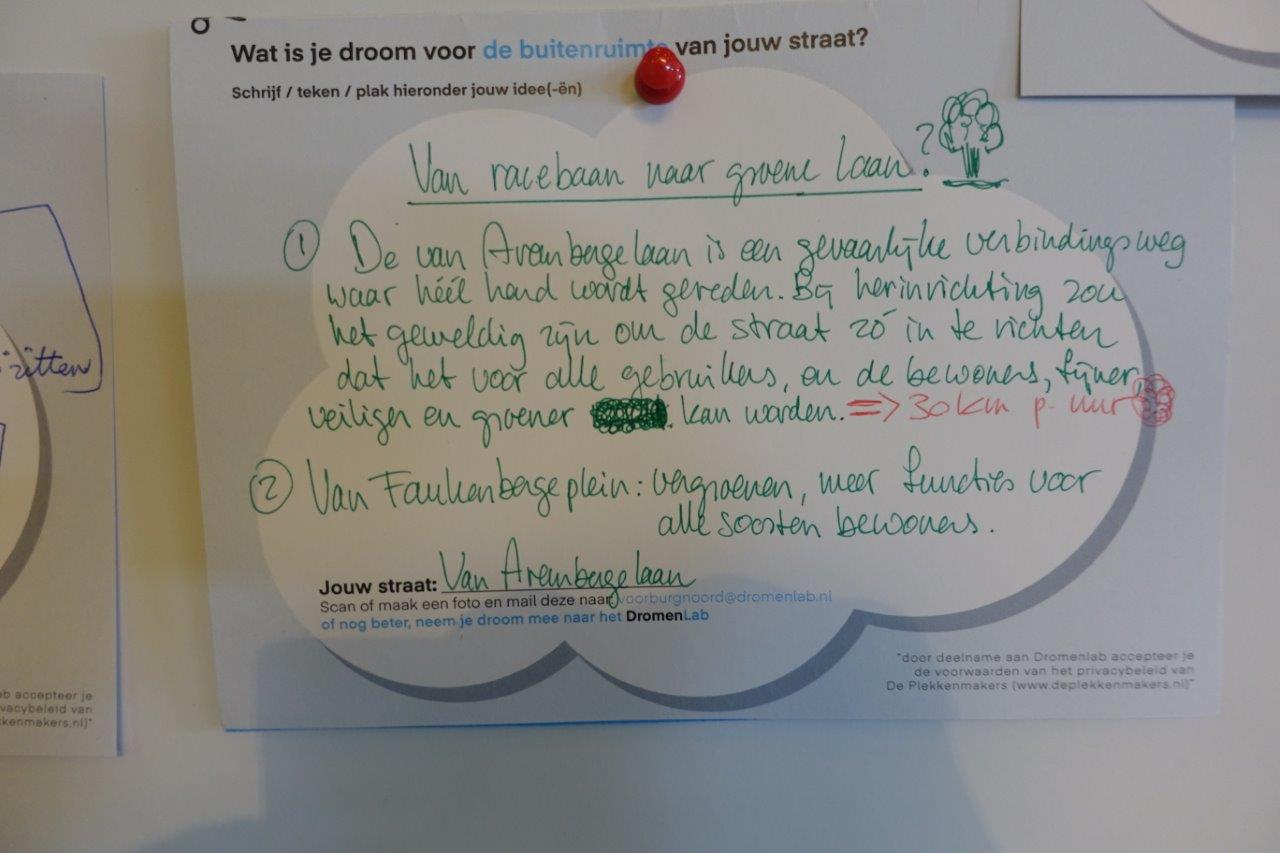 Wat is je droom voor de buitenruimte van jouw straat?
Schrijf / teken / plak hieronder jouw idee(-ën)
Van racebaan naar groene laan?
① De van Arembergelaan is een gevaarlijke verbindingsweg
waar héél hard wordt gereden. Bij herinrichting zou
het geweldig zijn om de straat zó in te richten
dat het voor alle gebruikers, en de bewoners, fijner,
veiliger en groener kan worden. => 30 km p. uur
② Van Faukenbergeplein: vergroenen, meer functies voor
alle soorten bewoners.
Jouw straat: Van Arembergelaan
Scan of maak een foto en mail deze naar voorburgnoord@dromenlab.nl
of nog beter, neem je droom mee naar het DromenLab
"door deelname aan Dromenlab accepteer je
de voorwaarden van het privacybeleid van
De Plekkenmakers (www.deplekkenmakers.nl)"
zitten
ab accepteer je
vacybeleid van
kkenmakers.nl)"